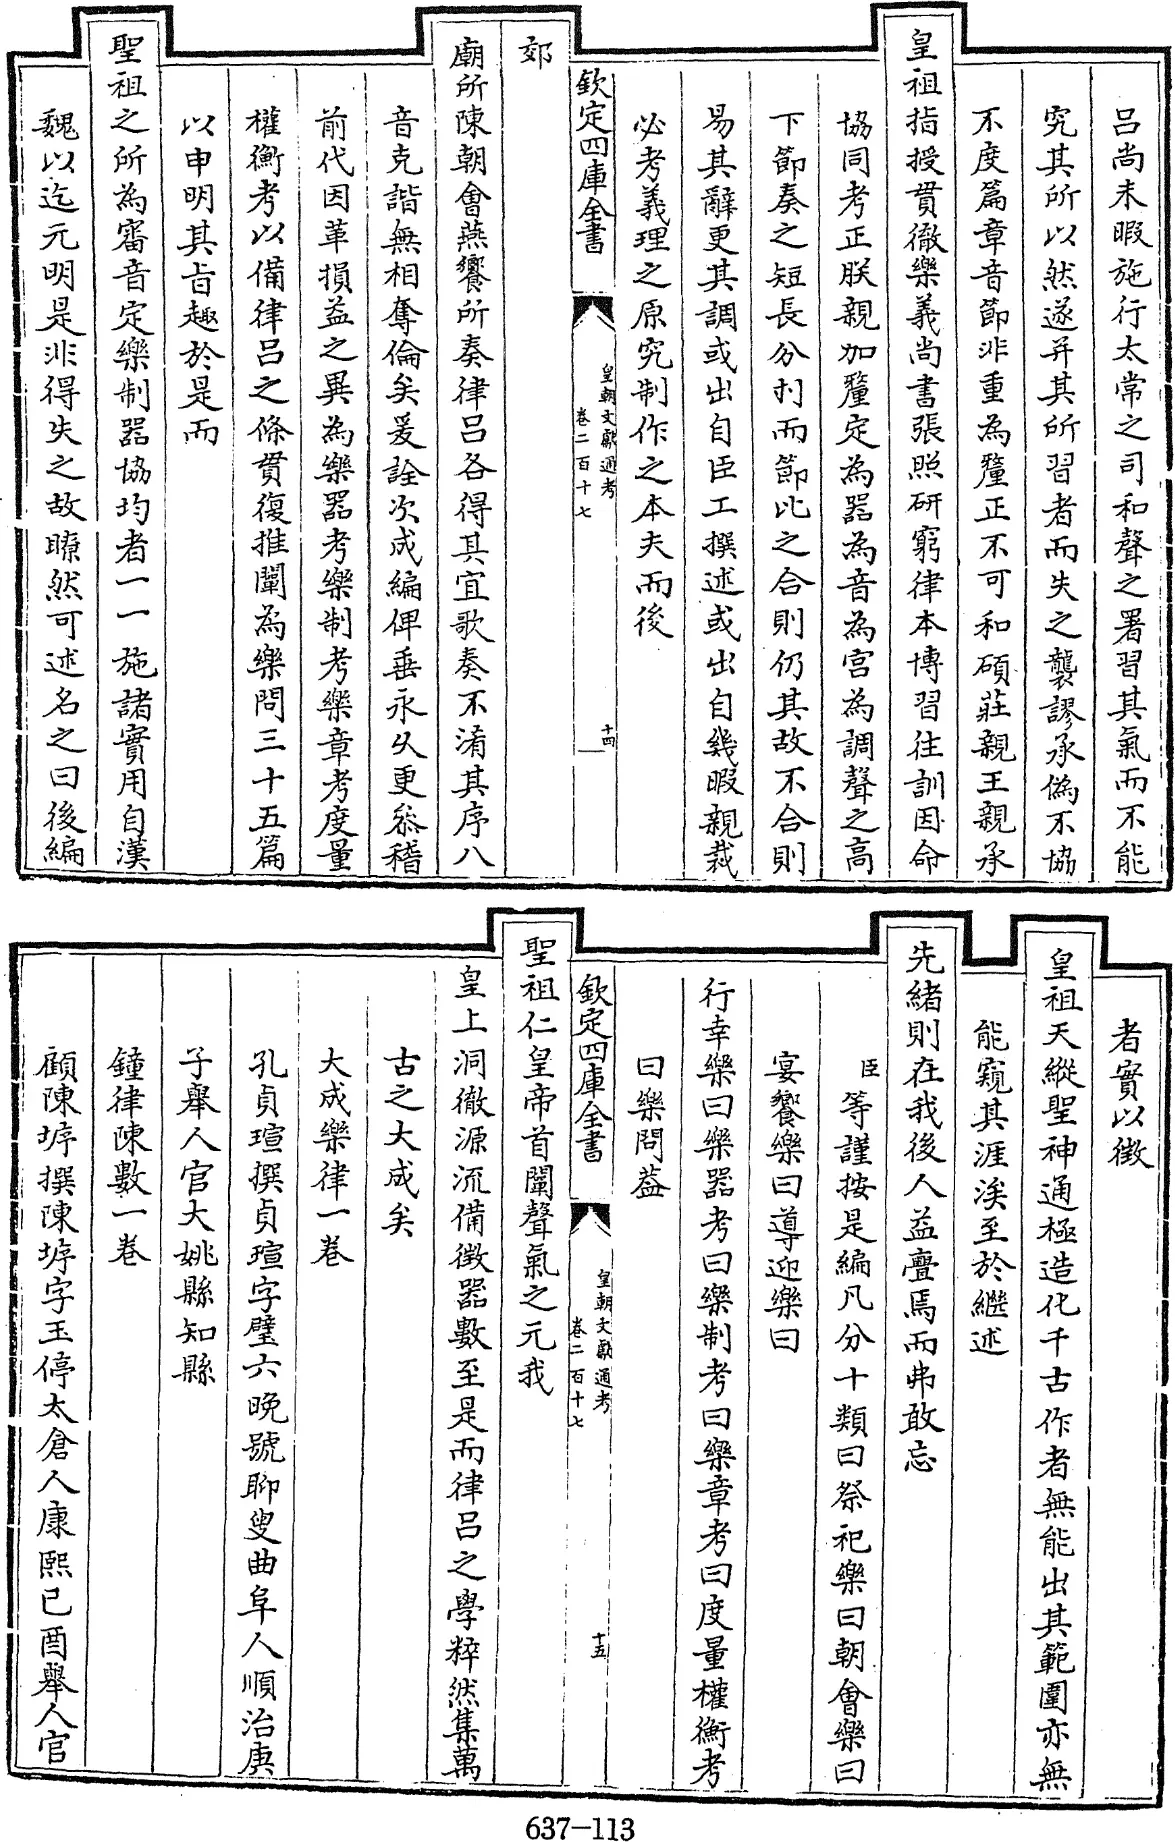 呂尚未暇施行太常之司和聲之署習其氣而不能
究其所以然遂并其所習者而失之襲謬承偽不協
不度篇章音節非重為釐正不可和碩莊親王親承
皇祖指授貫徹樂義尚書張照研窮律本博習往訓因命
協同考正朕親加釐定為器為音為宮為調聲之高
下節奏之短長分刌而節比之合則仍其故不合則
易其辭更其調或出自臣工撰述或出自幾暇親裁
必考義理之原究制作之本夫而後
欽定四庫全書
皇朝文獻通考
卷二百十七
十四
郊
廟所陳朝會燕饗所奏律呂各得其宜歌奏不淆其序八
音克諧無相奪倫矣爰詮次成編俾垂永久更叅稽
前代因革損益之異為樂器考樂制考樂章考度量
權衡考以備律呂之條貫復推闡為樂問三十五篇
以申明其旨趣於是而
聖祖之所為審音定樂制器協均者一一施諸實用自漢
魏以迄元明是非得失之故瞭然可述名之曰後編
者實以徵
皇祖天縱聖神通極造化千古作者無能出其範圍亦無
能窺其涯涘至於繼述
先緒則在我後人益亹焉而弗敢忘
臣等謹按是編凡分十類曰祭祀樂曰朝會樂曰
宴饗樂曰導迎樂曰
行幸樂曰樂器考曰樂制考曰樂章考曰度量權衡考
曰樂問葢
欽定四庫全書
皇朝文獻通考
卷二百十七
十五
聖祖仁皇帝首闡聲氣之元我
皇上洞徹源流備徴器數至是而律呂之學粹然集萬
古之大成矣
大成樂律一卷
孔貞瑄撰貞瑄字璧六晚號聊叟曲阜人順治庚
子舉人官大姚縣知縣
鐘律陳數一卷
顧陳垿撰陳垿字玉停太倉人康熙已酉舉人官
637-113